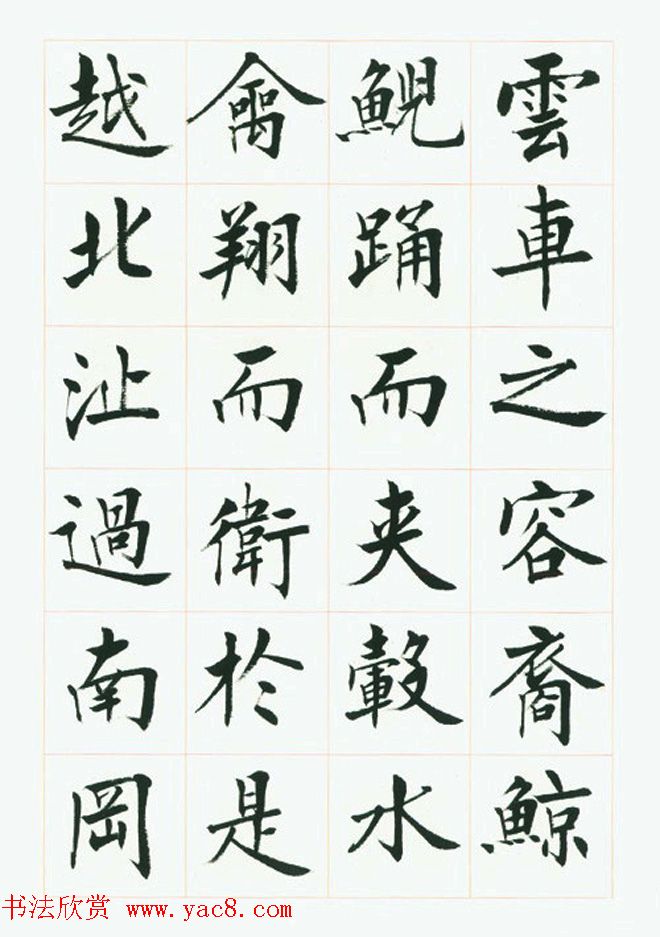 雲車之容裔鯨
鯢踊而夾轂水
禽翔而衛於是
越北沚過南岡
书法欣赏 www.yac8.com